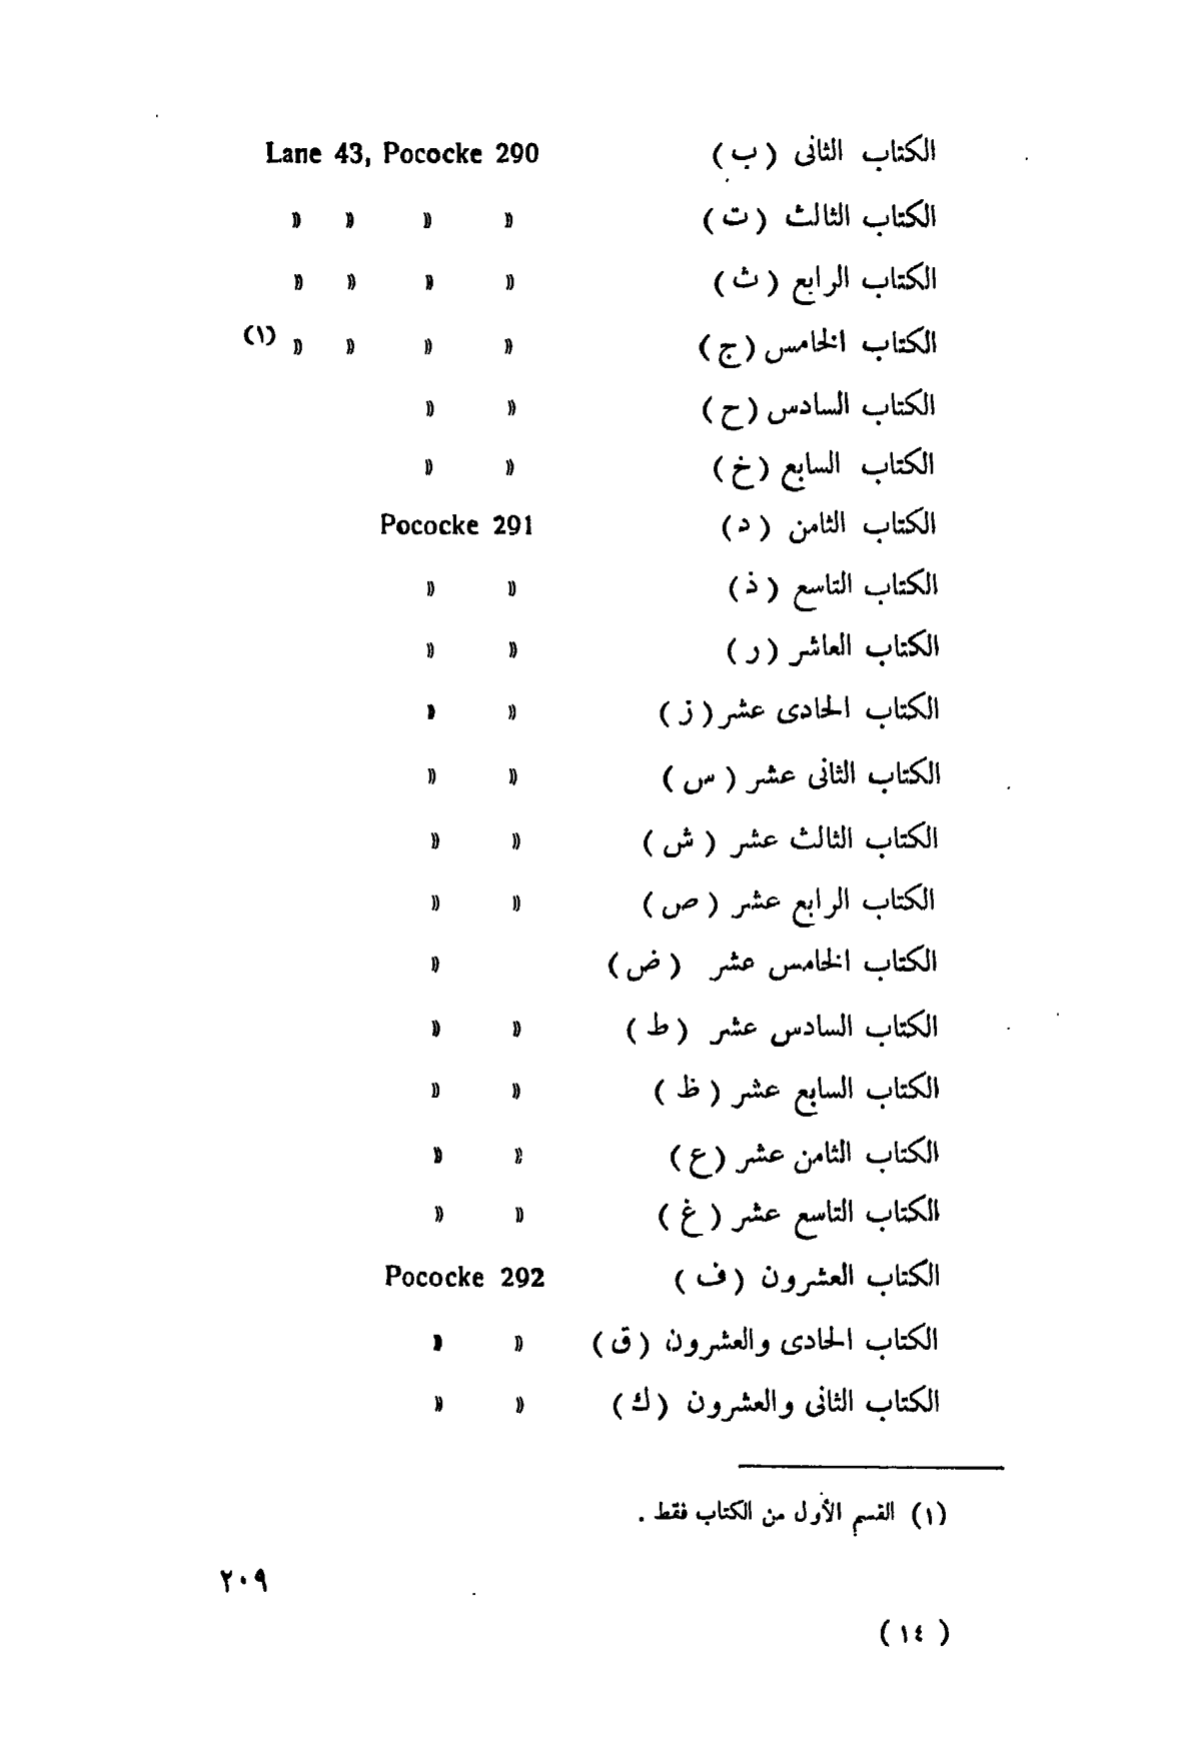 الكتاب الثانى (ب) Lane 43, Pococke 290
الكتاب الثالث (ت) » » » »
الكتاب الرابع (ث) » » » »
الكتاب الخامس (ج) » » » » (١)
الكتاب السادس (ح) » »
الكتاب السابع (خ) » »
الكتاب الثامن (د) Pococke 291
الكتاب التاسع (ذ) » »
الكتاب العاشر (ر) » »
الكتاب الحادى عشر (ز) » »
الكتاب الثانى عشر (س) » »
الكتاب الثالث عشر (ش) » »
الكتاب الرابع عشر (ص) » »
الكتاب الخامس عشر (ض) »
الكتاب السادس عشر (ط) » »
الكتاب السابع عشر (ظ) » »
الكتاب الثامن عشر (ع) » »
الكتاب التاسع عشر (غ) » »
الكتاب العشرون (ف) Pococke 292
الكتاب الحادى والعشرون (ق) » »
الكتاب الثانى والعشرون (ك) » »
(١) القسم الأول من الكتاب فقط .
٢٠٩
(١٤)